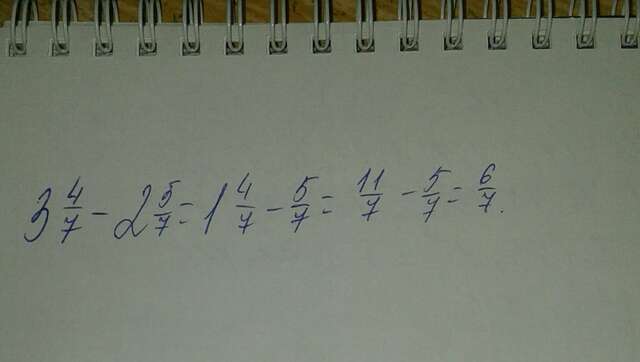 3 4/7 - 2 5/7 = 1 4/7 - 5/7 = 11/7 - 5/7 = 6/7.